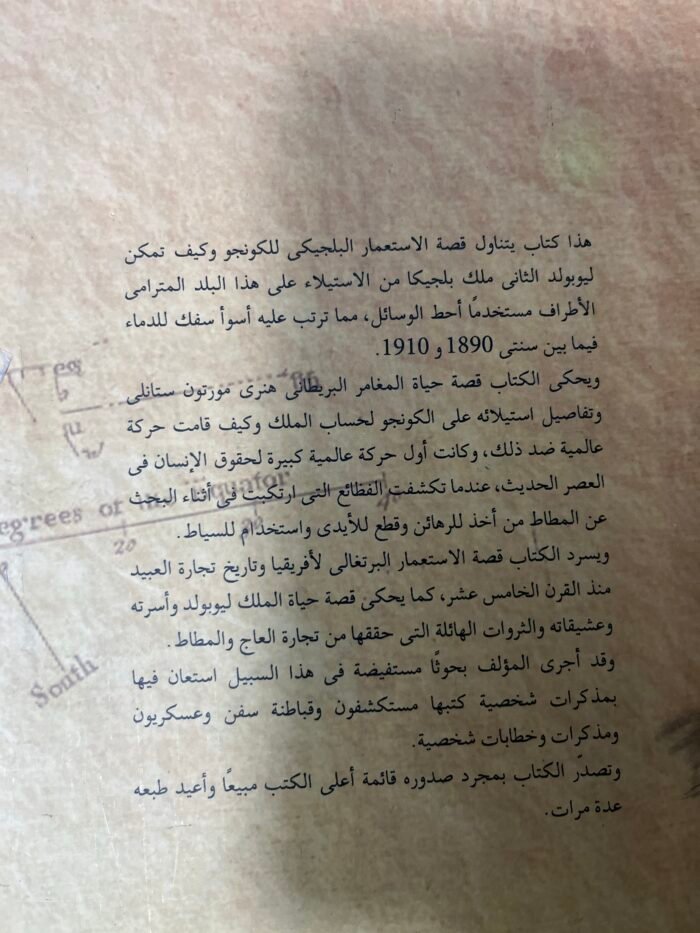 هذا كتاب يتناول قصة الاستعمار البلجيكى للكونجو وكيف تمكن
ليوبولد الثانى ملك بلجيكا من الاستيلاء على هذا البلد المترامى
الأطراف مستخدمًا أحط الوسائل، مما ترتب عليه أسوأ سفك للدماء
فيما بين سنتى 1890 و 1910.
ويحكى الكتاب قصة حياة المغامر البريطانى هنرى مورتون ستانلى
وتفاصيل استيلائه على الكونجو لحساب الملك وكيف قامت حركة
عالمية ضد ذلك، وكانت أول حركة عالمية كبيرة لحقوق الإنسان فى
العصر الحديث، عندما تكشفت الفظائع التى ارتكبت فى أثناء البحث
عن المطاط من أخذ للرهائن وقطع للأيدى واستخدام للسياط.
ويسرد الكتاب قصة الاستعمار البرتغالى لأفريقيا وتاريخ تجارة العبيد
منذ القرن الخامس عشر، كما يحكى قصة حياة الملك ليوبولد وأسرته
وعشيقاته والثروات الهائلة التى حققها من تجارة العاج والمطاط.
وقد أجرى المؤلف بحوثًا مستفيضة فى هذا السبيل استعان فيها
بمذكرات شخصية كتبها مستكشفون وقباطنة سفن وعسكريون
ومذكرات وخطابات شخصية.
وتصدّر الكتاب بمجرد صدوره قائمة أعلى الكتب مبيعًا وأعيد طبعه
عدة مرات.
egrees of the Equator
20
South